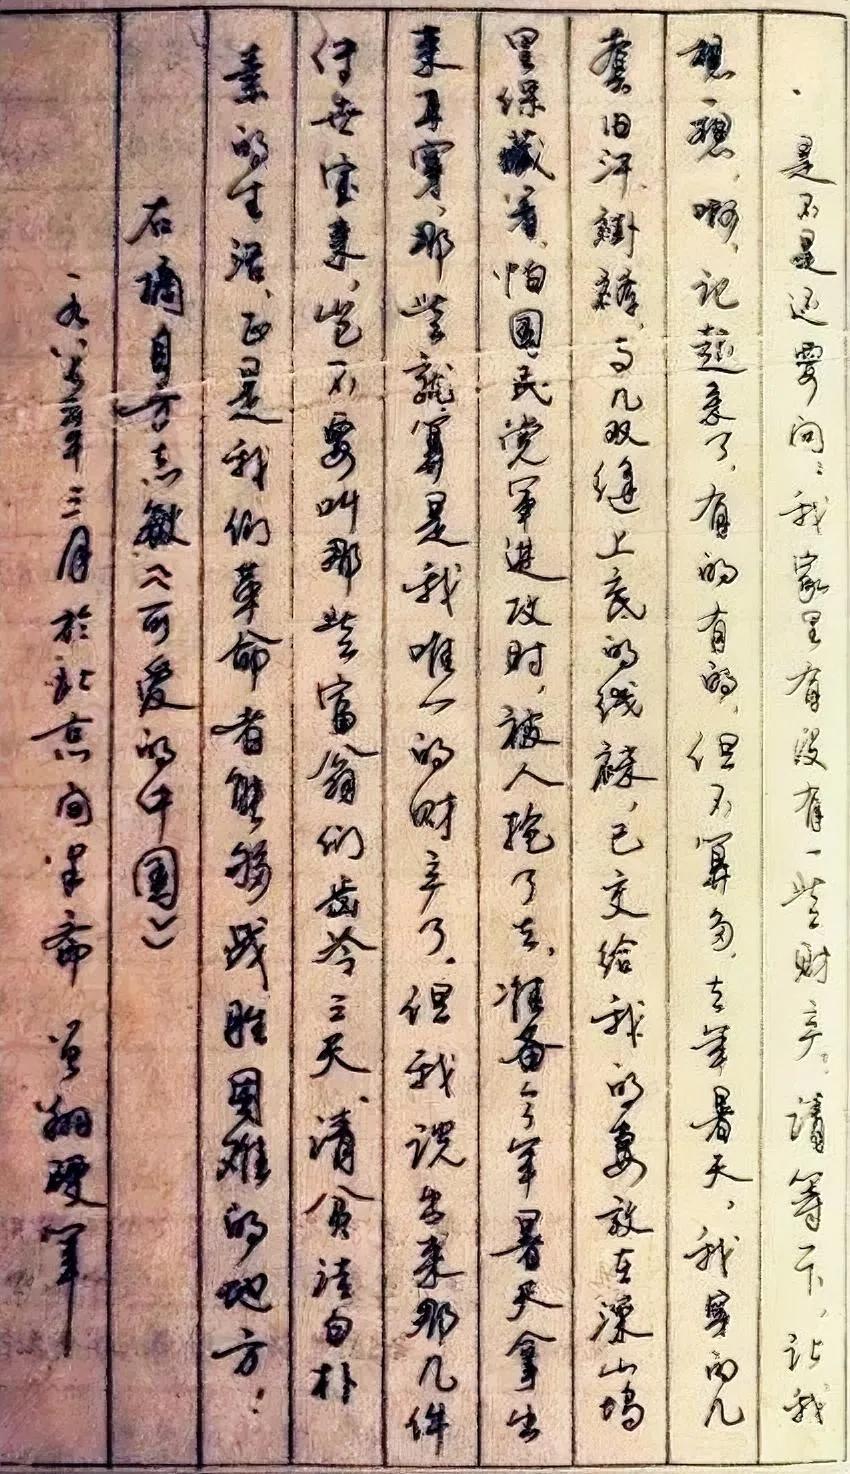 是不是还要问：我家里有没有一些财产。请等下，让我
想一想，啊，记起来了，有的有的，但不算多。去年暑天，我穿的几
套旧汗褂裤，与几双缝上底的线袜，已交给我的妻放在深山坞
里保藏着，怕国民党军进攻时，被人抢了去，准备今年暑天拿出
来再穿，那些就算是我唯一的财产了。但我说出来那几件
传世宝来，岂不要叫那些富翁们齿冷三天。清贫洁白朴
素的生活，正是我们革命者能够战胜困难的地方！
右摘自方志敏《可爱的中国》
一九八年三月於北京向斋 曾翔硬笔